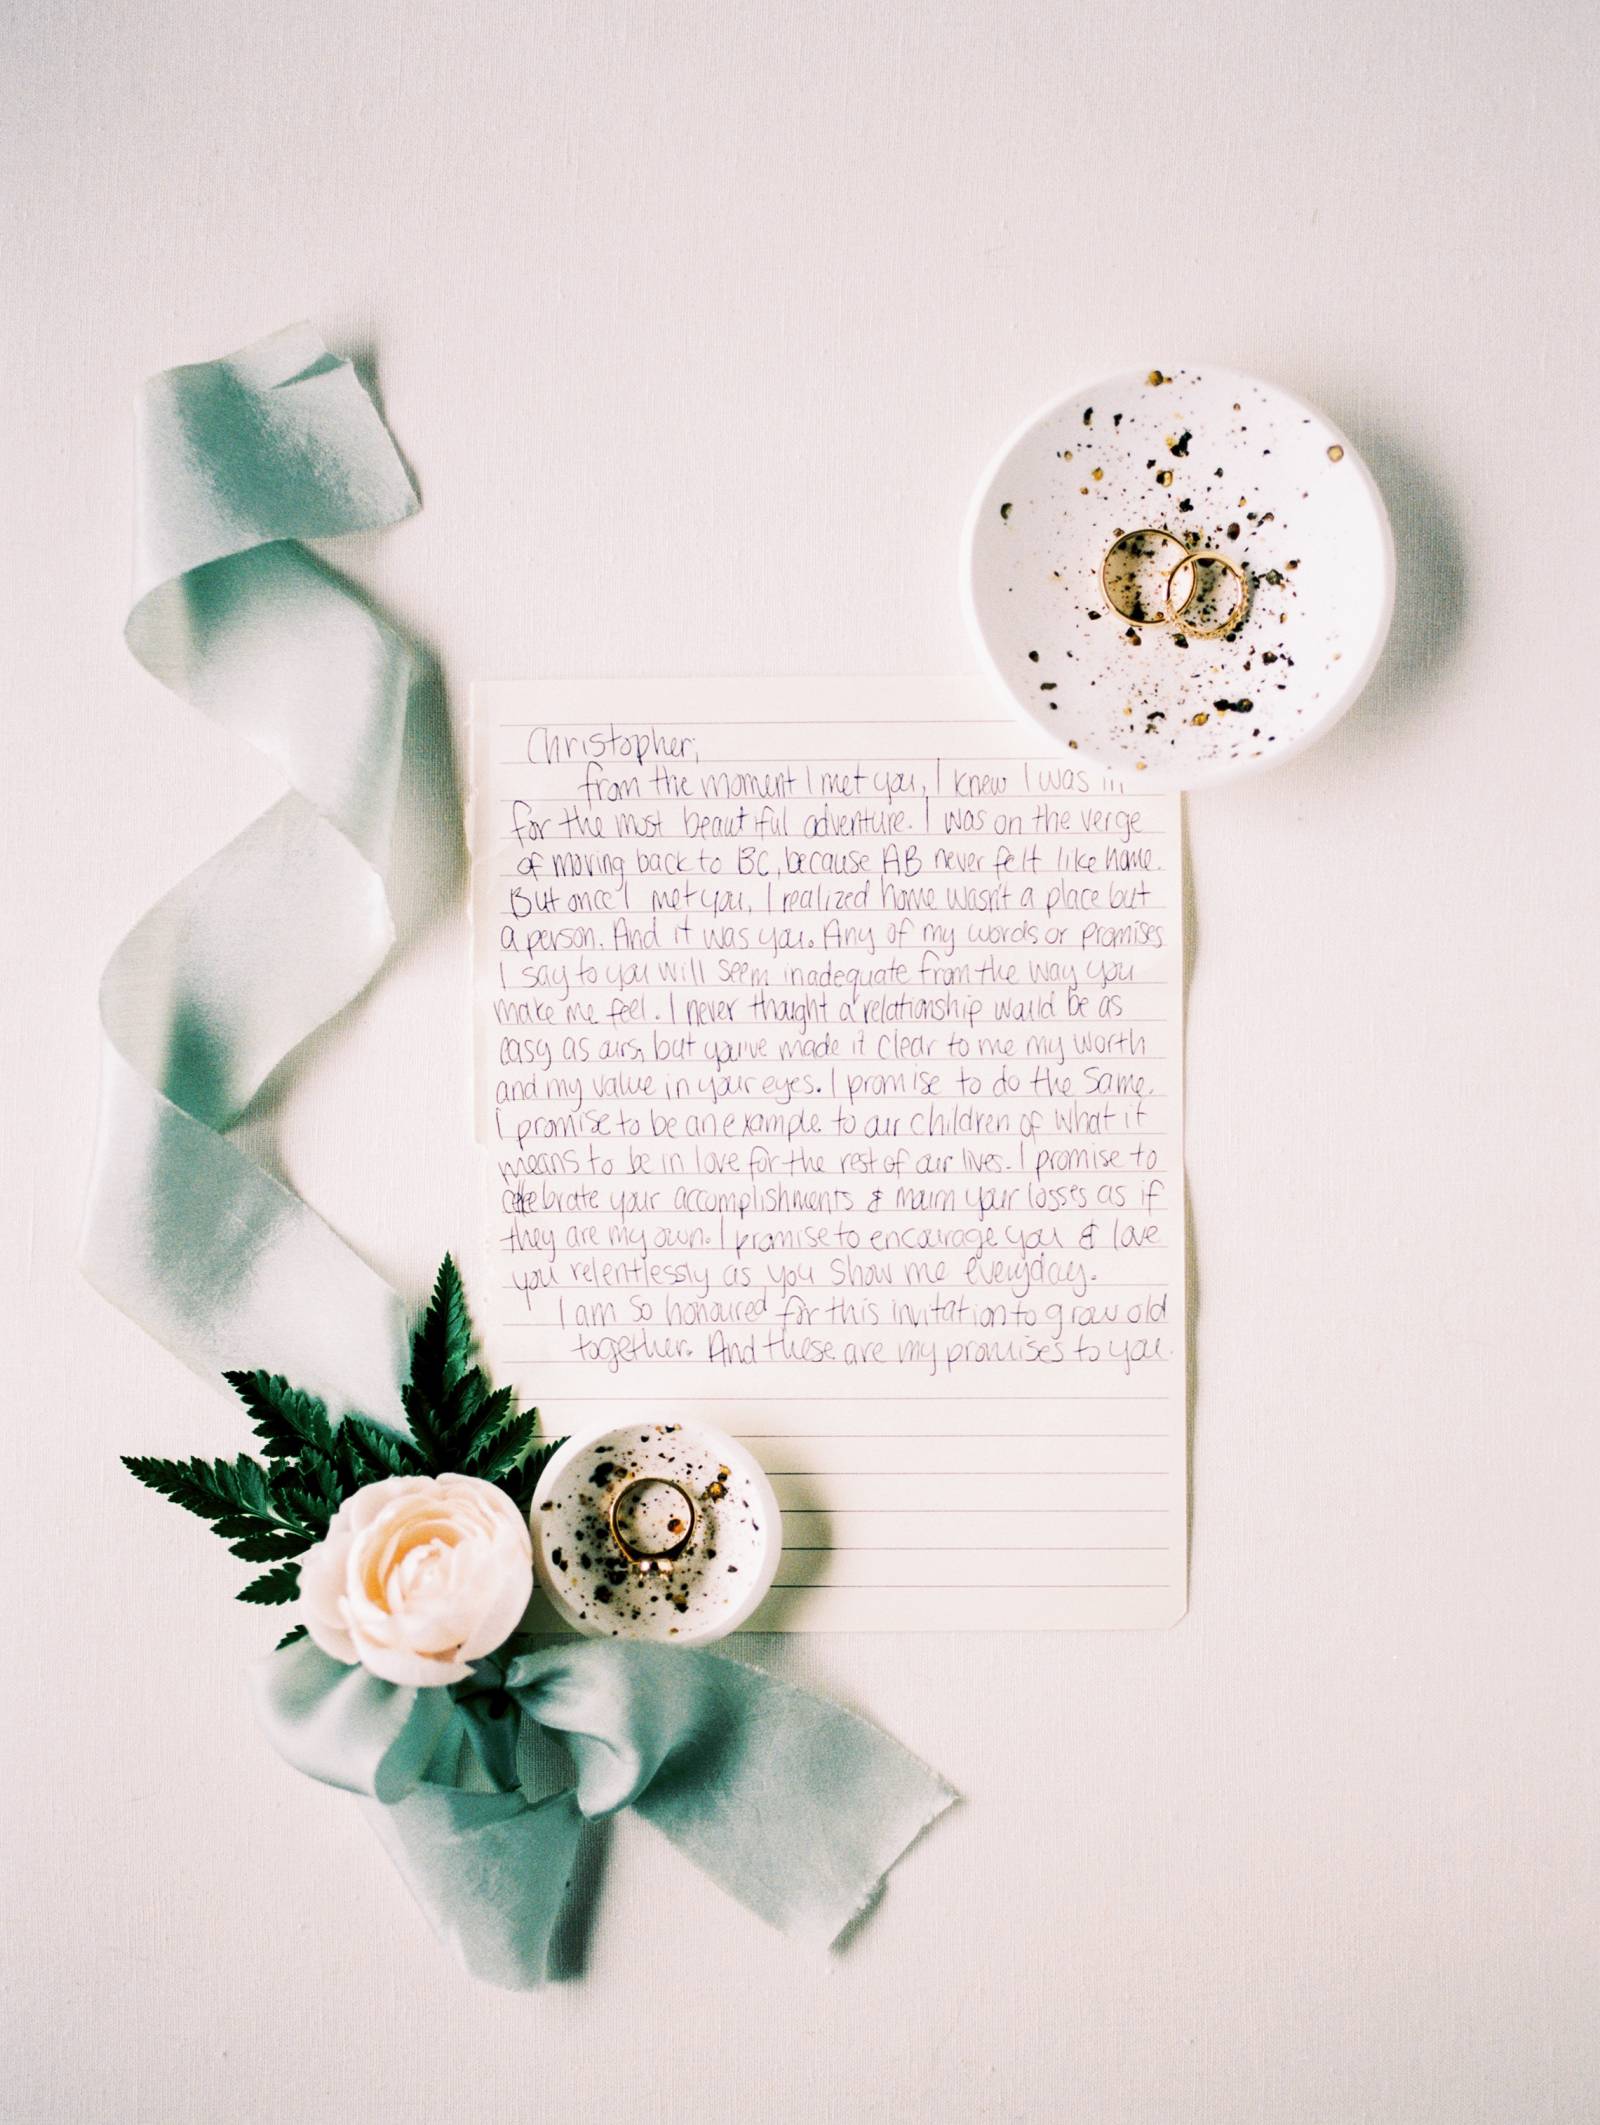 Christopher,
from the moment I met you, I knew I was in
for the most beautiful adventure. I was on the verge
of moving back to BC, because AB never felt like home.
But once I met you, I realized home wasn't a place but
a person. And it was you. Any of my words or promises
I say to you will seem inadequate from the way you
make me feel. I never thought a relationship would be as
easy as ours, but you've made it clear to me my worth
and my value in your eyes. I promise to do the same.
I promise to be an example to our children of what it
means to be in love for the rest of our lives. I promise to
celebrate your accomplishments & mourn your losses as if
they are my own. I promise to encourage you & love
you relentlessly as you show me everyday.
I am so honoured for this invitation to grow old
together. And these are my promises to you.